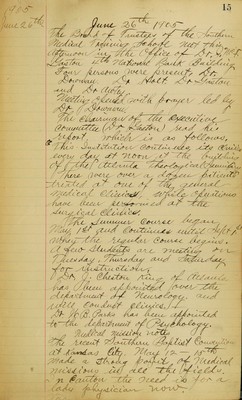 15
1905
June 26th
June 26th 1905
The Board of Trustees of the Southern
Medical Training School met this
afternoon in the office of Dr.
4th National Bank Building
Four persons were present, Dr.
Downman Dr. Holt Dr. Gaston
and Dr.
Meeting opened with prayer led by
Dr. Downman
The Chairman of the Executive
Committee (Dr. Gaston) read his
report which is as follows,
This Institution continues its Clinics
every day at noon at the building
of the Atlanta Theological Seminary
There were over a dozen patients
treated at one of the general
medical clinics while operations
have been performed at the
Surgical Clinics.
The Summer Course began
May 1st and continues until Sept 1st
when the regular Course begins.
A few students are meeting on
Tuesday, Thursday and Saturday
for instruction.
Dr. J. Cheston King of Atlanta
has been appointed over the
department of Neurology and
will conduct clinics.
Dr. W. B. Parks has been appointed
to the department of Psychology.
Medical mission notes
The recent Southern Baptist Convention
at Kansas City May 12 - 15th
made a strong point of Medical
missions in all the fields.
In Canton the need is for a
lady physician now.